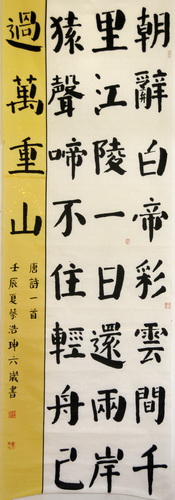 朝辭白帝彩雲間千
里江陵一日還兩岸
猿聲啼不住輕舟已
過萬重山
唐詩一首
壬辰夏黎浩珅六歲書